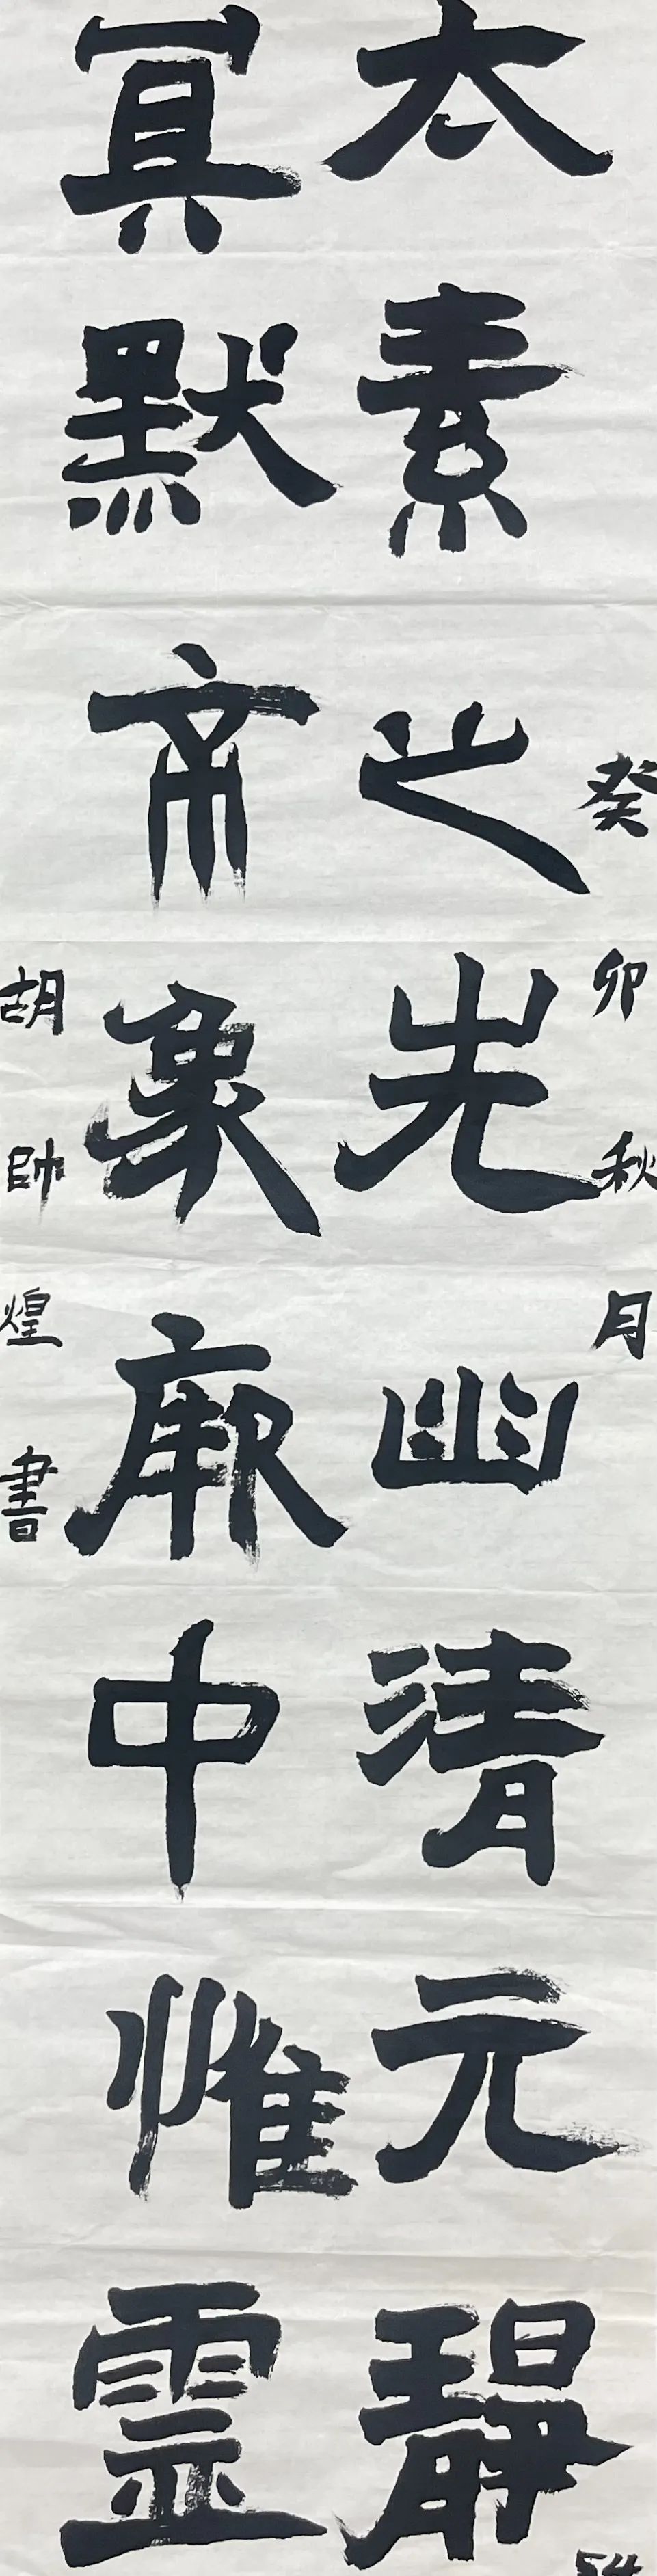 太素之先幽清元静
冥默帝象厥中惟靈
癸卯秋月
胡帥煌書
54